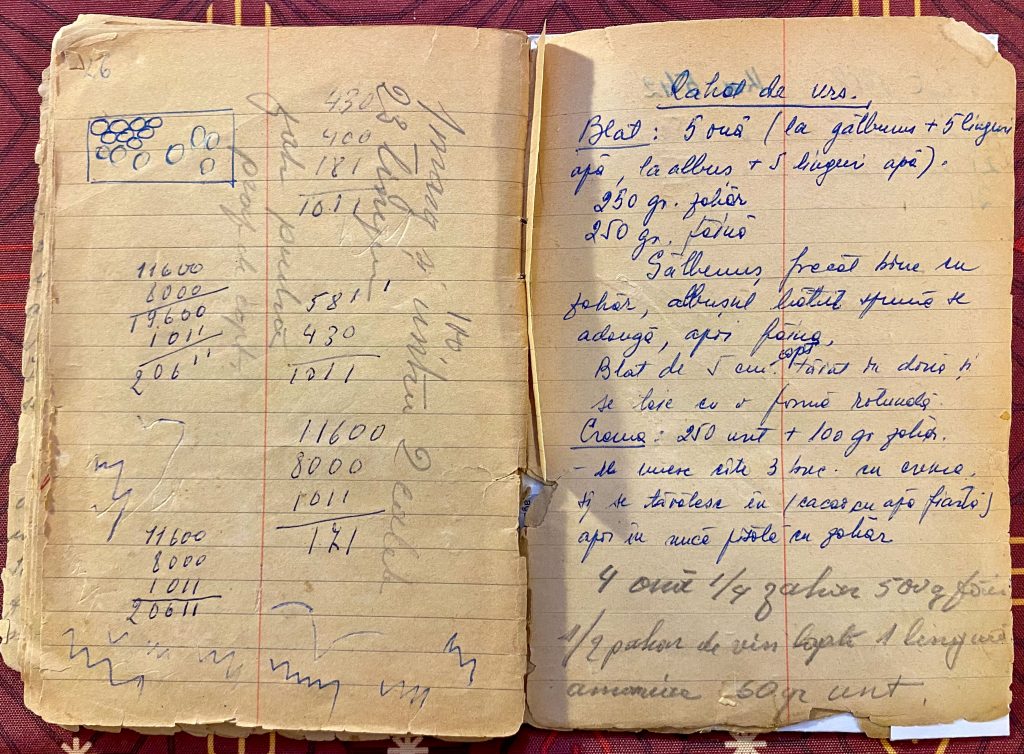 26
430
400
171
1011
11600
8000
19.600
1011
20611
581
430
1011
11600
8000
1011
171
11600
8000
1011
20611
praf de copt
Rahat de urs.
Blat: 5 ouă (la gălbenuș + 5 linguri
apă, la albuș + 5 linguri apă).
250 gr. zahăr
250 gr. făină
Gălbenuș frecat bine cu
zahăr, albușul bătut spumă se
adaugă, apoi făina.
Blat de 5 cm. apoi tăiat în două și
se taie cu o formă rotundă.
Crema: 250 unt + 100 gr zahăr.
- se unesc cîte 3 buc. cu crema,
și se tăvălesc în (cacao cu apă fiartă)
apoi în nucă pisată cu zahăr
4 ouă 1/4 zahăr 500g făină
1/2 pahar de vin 1 lingură
amoniac 50 gr unt.